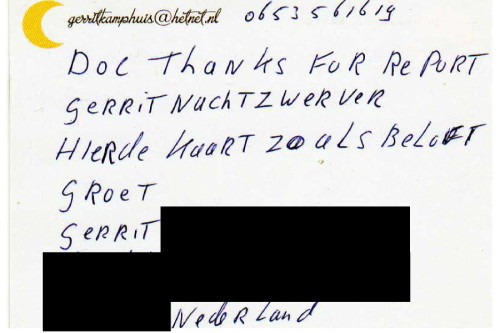 gerritkamphuis@hetnet.nl 0653561619
DOC THANKS FOR REPORT
GERRIT NACHTZWERVER
HIERDE KAART ZOALS BELOFT
GROET
GERRIT
NederLand